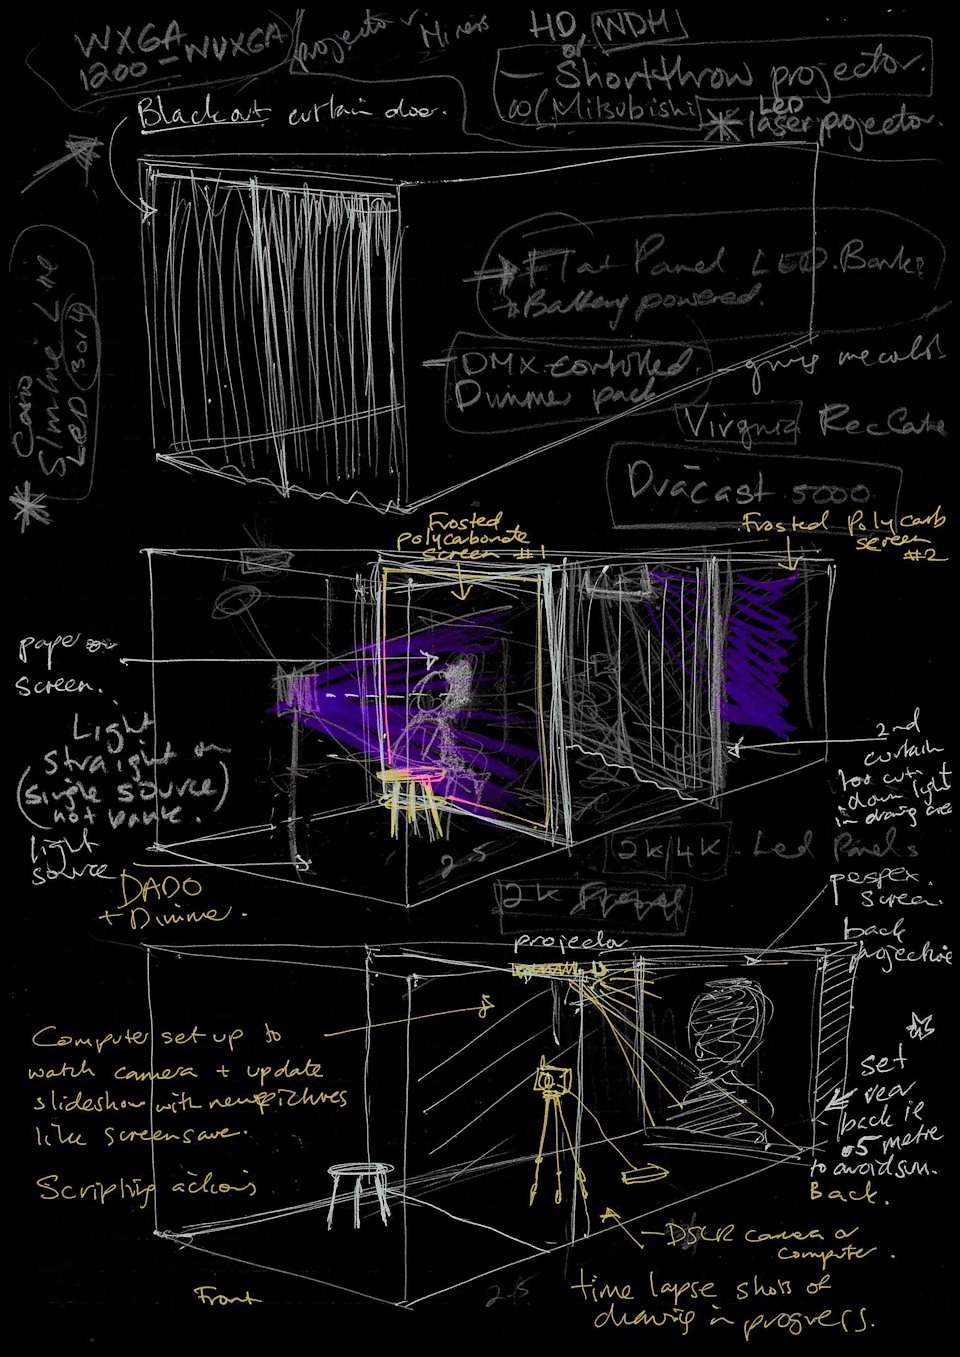 WXGA
1200 - WUXGA
projector
Mirrors
HD, WDM
or
- Shortthrow projector.
(Mitsubishi)
LED
laser projector.
Blackout curtain door.
Flat Panel LED. Banks
+ Battery powered.
- DMX controlled
Dimme pack
Casio
Slimline
LED
Virginia
Dracast 5000
Frosted
polycarbonate
screen #1
Frosted Polycarb
screen
#2
paper
screen.
Light
straight on
(single source)
not bank.
light
source
2nd
curtain
too cut
down light
in drawing area
2.5
2K/4K Led Panels
2K
DADO
+ Dimme.
perspex
screen.
back
projection
projector
Computer set up to
watch camera + update
slideshow with new pictures
like screensave.
Scripting actions
set
rear
back ie
.5 metre
to avoid sun.
Back.
- DSLR camera or
computer.
Front
2.5
time lapse shots of
drawing in progress.